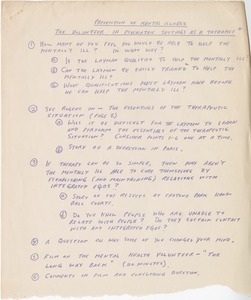 PREVENTION OF MENTAL ILLNESS
THE VOLUNTEER IN PSYCHIATRIC SETTINGS AS A THERAPIST
① HOW MANY OF YOU FEEL YOU WOULD BE ABLE TO HELP THE
MENTALLY ILL? IN WHAT WAY?
Ⓐ IS THE LAYMAN QUALIFIED TO HELP THE MENTALLY ILL?
Ⓑ CAN THE LAYMAN BE EASILY TRAINED TO HELP THE
MENTALLY ILL?
Ⓒ WHAT QUALIFICATIONS MUST LAYMAN HAVE BEFORE
HE CAN HELP THE MENTALLY ILL?
② SEE RUBENS ON - THE ESSENTIALS OF THE THERAPEUTIC
SITUATION (PAGE 8)
Ⓐ WILL IT BE DIFFICULT FOR THE LAYMAN TO LEARN
AND PERFORM THE ESSENTIALS OF THE THERAPEUTIC
SITUATION? CONSIDER POINTS 1-6 ONE AT A TIME.
Ⓑ STORY OF A DIRECTION IN PARIS.
③ IF THERAPY CAN BE SO SIMPLE, THEN WHY AREN'T
THE MENTALLY ILL ABLE TO CURE THEMSELVES BY
ESTABLISHING (AND MAINTAINING) RELATIONS WITH
INTEGRATED EGOS?
Ⓐ STORY OF THE MISSES AT CROTONA PARK HAND-
BALL COURTS.
Ⓑ DO YOU KNOW PEOPLE WHO ARE UNABLE TO
RELATE WITH OTHER PEOPLE? DO THEY SUSTAIN CONTACT
WITH ANY INTEGRATED EGOS?
④ A QUESTION ON WHY SOME OF YOU CHANGED YOUR MIND.
⑤ FILM ON THE MENTAL HEALTH VOLUNTEER - "THE
LONG WAY BACK" (30 MINUTES)
⑥ COMMENTS ON FILM AND CONCLUDING QUESTION.